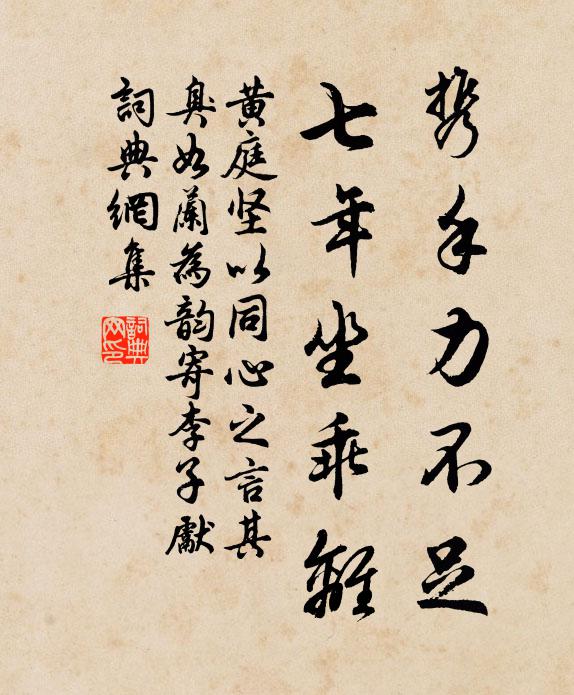 携手力不足
七年坐乖離
黄庭坚以同心之言其
臭如蘭為韵寄李子獻
詞典網集
詞典网印